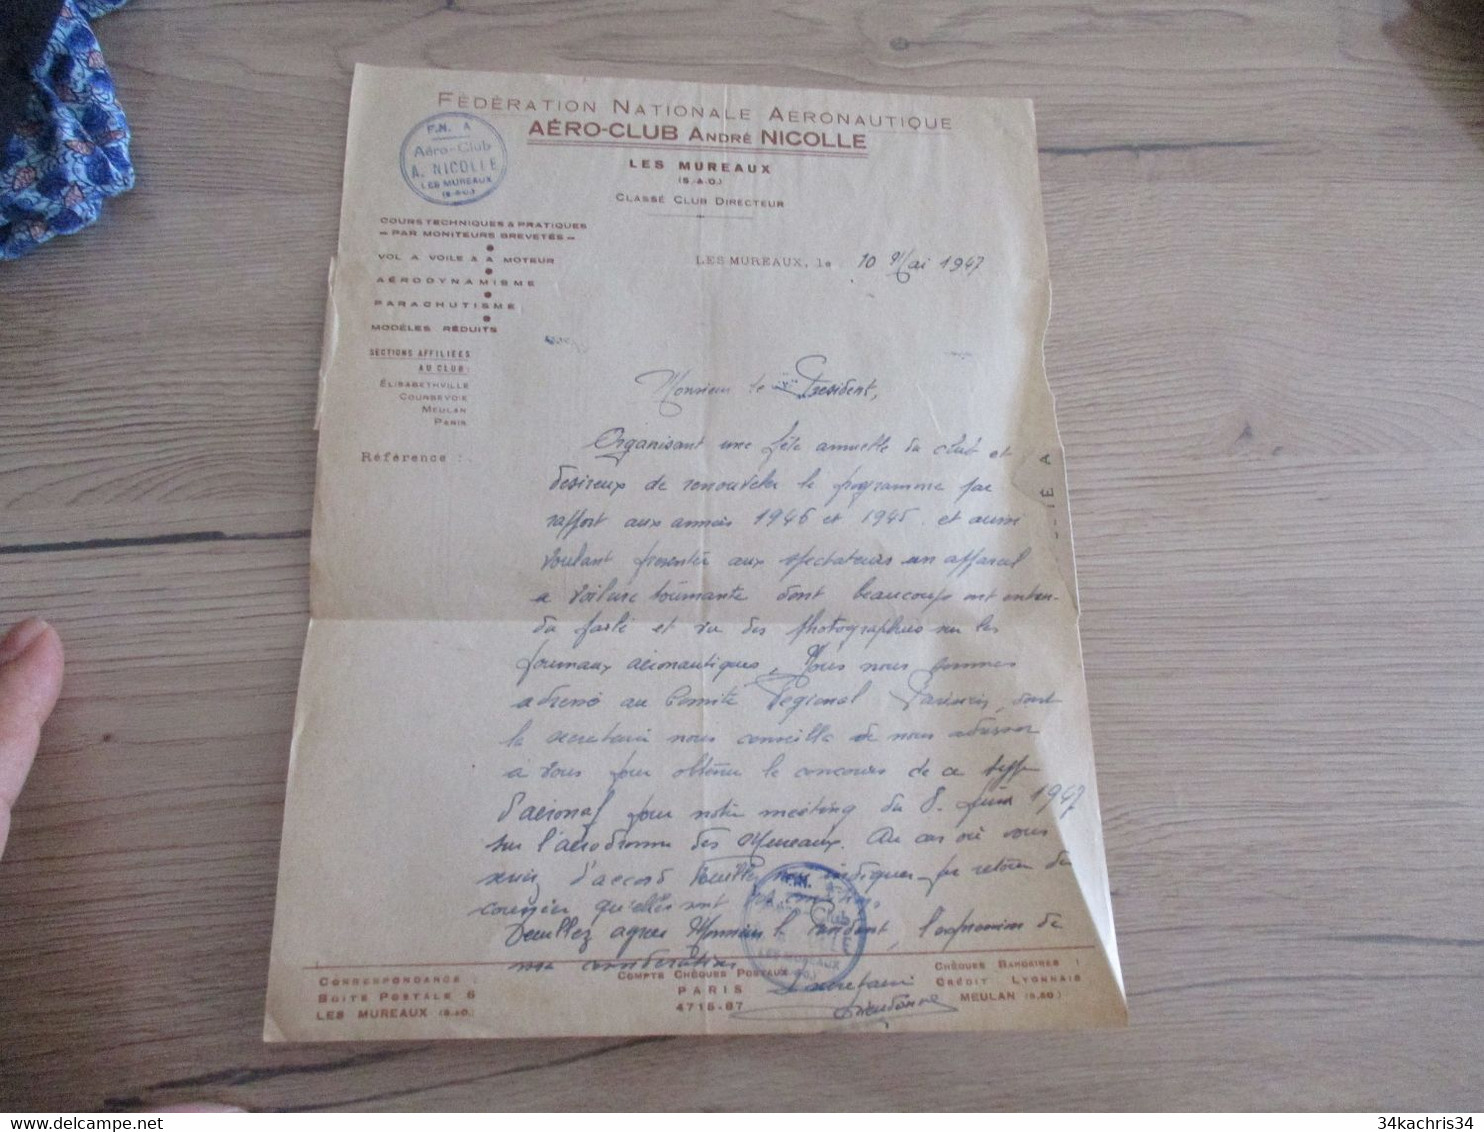 FÉDÉRATION NATIONALE AÉRONAUTIQUE
AÉRO-CLUB ANDRÉ NICOLLE
LES MUREAUX
(S.-&-O.)
CLASSÉ CLUB DIRECTEUR
F.N. A
Aéro-Club
A. NICOLLE
LES MUREAUX
(S.-&-O.)
COURS TECHNIQUES & PRATIQUES
— PAR MONITEURS BREVETÉS —
VOL A VOILE & A MOTEUR
AÉRODYNAMISME
PARACHUTISME
MODÈLES RÉDUITS
SECTIONS AFFILIÉES
AU CLUB :
ÉLISABETHVILLE
COURBEVOIE
MEULAN
PARIS
Référence :
LES MUREAUX, le 10 Mai 1947
Monsieur le Président,
Organisant une fête annuelle du club et
désireux de renouveler le programme par
rapport aux années 1946 et 1945. et aussi
voulant présenter aux spectateurs un appareil
a voilure tournante dont beaucoup ont enten-
du parlé et vu des photographies sur les
journaux aéronautiques, Nous nous sommes
adressé au Comité Régional Parisien, dont
la secretaire nous conseilla de nous adresser
a vous pour obtenir le concours de ce type
d'aéronef pour notre meeting du 8. Juin 1947
sur l'aérodrome des Mureaux. Au cas où vous
seriez d'accord Veuillez nous indiquer par retour du
courrier qu'elles sont vos conditions.
Veuillez agréer Monsieur le Président, l'expression de
ma considération
Le secretaire
CORRESPONDANCE :
BOITE POSTALE 6
LES MUREAUX (S.&O.)
COMPTE CHÈQUES POSTAUX
PARIS
4715-87
CHÈQUES BANCAIRES :
CRÉDIT LYONNAIS
MEULAN (S.&O.)
F.N. A
Club
LES MUREAUX
34kachris34